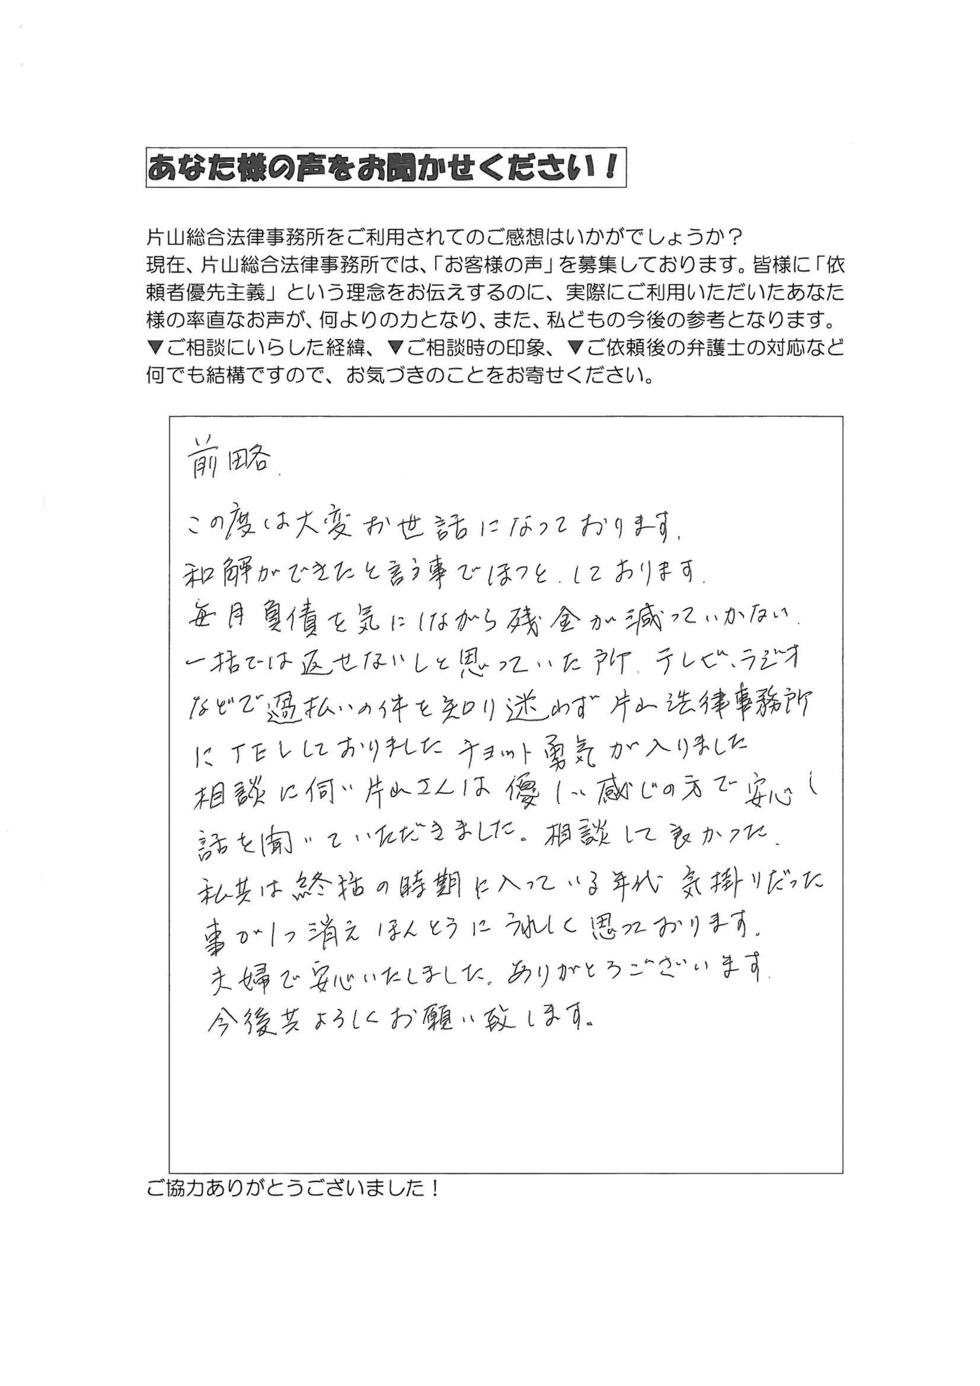 あなた様の声をお聞かせください！
片山総合法律事務所をご利用されてのご感想はいかがでしょうか？
現在、片山総合法律事務所では、「お客様の声」を募集しております。皆様に「依
頼者優先主義」という理念をお伝えするのに、実際にご利用いただいたあなた
様の率直なお声が、何よりの力となり、また、私どもの今後の参考となります。
▼ご相談にいらした経緯、▼ご相談時の印象、▼ご依頼後の弁護士の対応など
何でも結構ですので、お気づきのことをお寄せください。
前略.
この度は大変お世話になっております.
和解ができたと言う事でほっと.しております.
毎月負債を気にしながら残金が減っていかない.
一括では返せないしと思っていた所.テレビ、ラジオ
などで過払いの件を知り迷わず片山法律事務所
にTELしておりましたチョット勇気が入りました
相談に伺い片山さんは優しい感じの方で安心し
話を聞いていただきました。相談して良かった.
私共は終括の時期に入っている年代 気掛りだった
事が1つ消えほんとうにうれしく思っております.
夫婦で安心いたしました。ありがとうございます.
今後共よろしくお願い致します。
ご協力ありがとうございました！